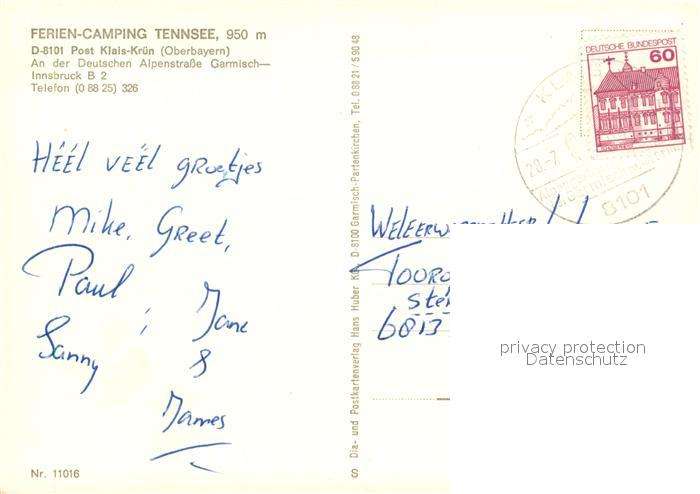 FERIEN-CAMPING TENNSEE, 950 m
D-8101 Post Klais-Krün (Oberbayern)
An der Deutschen Alpenstraße Garmisch—
Innsbruck B 2
Telefon (0 88 25) 326
HÉÉL VEËL GROETJES
Mike, GREET,
Paul, Jane
Sanny &
James
Nr. 11016
S Dia- und Postkartenverlag Hans Huber KG D-8100 Garmisch-Partenkirchen, Tel. 0 88 21 / 5 90 48
DEUTSCHE BUNDESPOST
60
8101
6813
privacy protection
Datenschutz